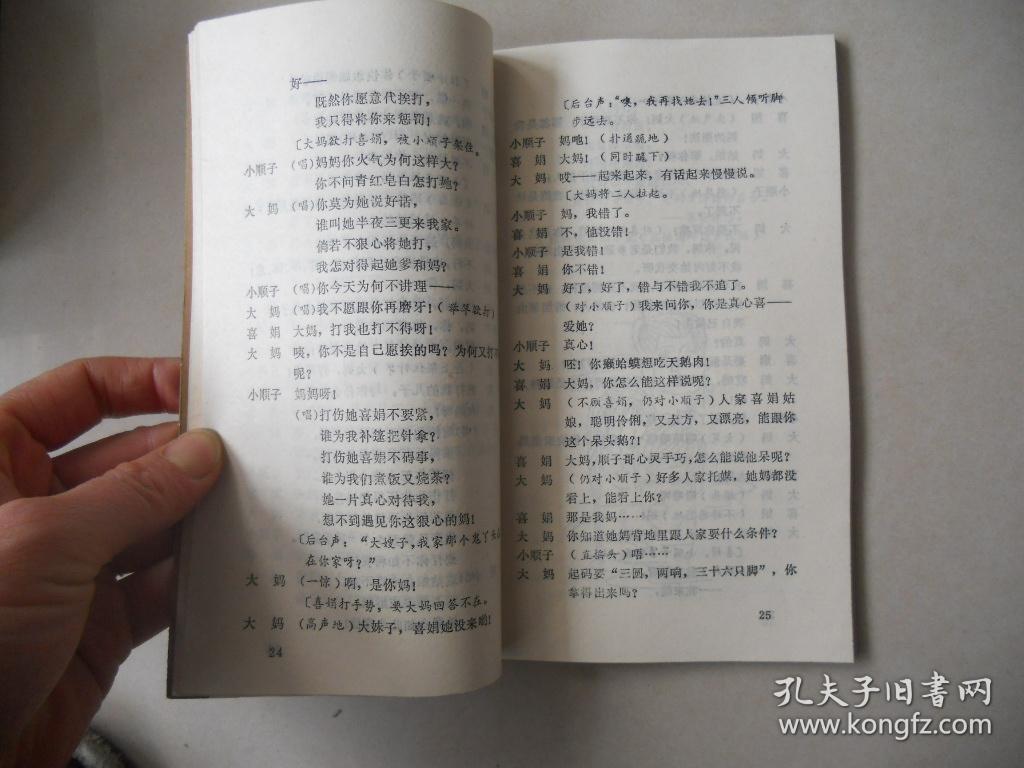 好——
既然你愿意代挨打，
我只得将你来惩罚！
〔大妈欲打喜娟，被小顺子架住。
小顺子 （唱）妈妈你火气为何这样大？
你不问青红皂白怎打她？
大 妈 （唱）你莫为她说好话，
谁叫她半夜三更来我家。
倘若不狠心将她打，
我怎对得起她爹和妈？
小顺子 （唱）你今天为何不讲理——
大 妈 （唱）我不愿跟你再磨牙！（举琴欲打）
喜 娟 大妈，打我也打不得呀！
大 妈 咦，你不是自己愿挨的吗？为何又打不
呢？
小顺子 妈妈呀！
（唱）打伤她喜娟不要紧，
谁为我补篷把针拿？
打伤她喜娟不碍事，
谁为我们煮饭又烧茶？
她一片真心对待我，
想不到遇见你这狠心的妈！
〔后台声：“大嫂子，我家那个鬼丫头
在你家呀？”
大 妈 （一惊）啊，是你妈！
〔喜娟打手势，要大妈回答不在。
大 妈 （高声地）大妹子，喜娟她没来哟！
24
〔后台声：“噢，我再找她去！”三人倾听脚
步远去。
小顺子 妈吔！（扑通跪地）
喜 娟 大妈！（同时跪下）
大 妈 哎——起来起来，有话起来慢慢说。
〔大妈将二人拉起。
小顺子 妈，我错了。
喜 娟 不，他没错！
小顺子 是我错！
喜 娟 你不错！
大 妈 好了，好了，错与不错我不追了。
（对小顺子）我来问你，你是真心喜——
爱她？
小顺子 真心！
大 妈 呸！你癞蛤蟆想吃天鹅肉！
喜 娟 大妈，你怎么能这样说呢？
大 妈 （不顾喜娟，仍对小顺子）人家喜娟姑
娘，聪明伶俐，又大方，又漂亮，能跟你
这个呆头鹅？！
喜 娟 大妈，顺子哥心灵手巧，怎么能说他呆呢？
大 妈 （仍对小顺子）好多人家托媒，她妈都没
看上，能看上你？
喜 娟 那是我妈……
大 妈 你知道她妈背地里跟人家要什么条件？
小顺子 （直摇头）唔……
大 妈 起码要“三圆，两响，三十六只脚”，你
拿得出来吗？
25
孔夫子旧书网
www.kongfz.com